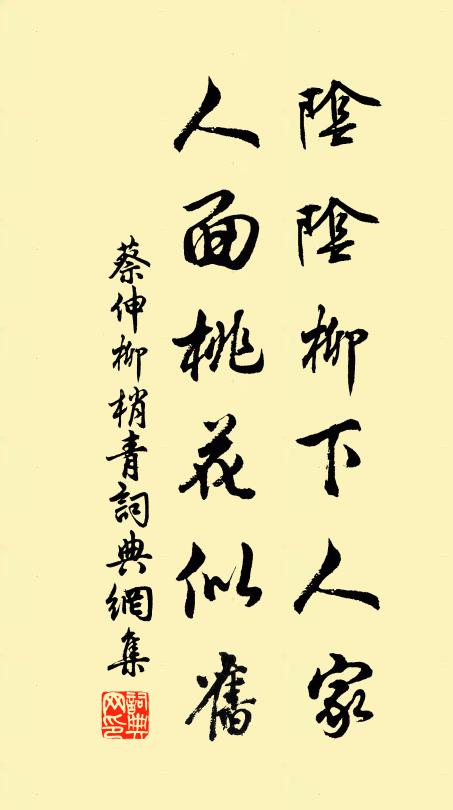 陰陰柳下人家
人面桃花似舊
蔡伸柳梢青詞典網集
詞典网印